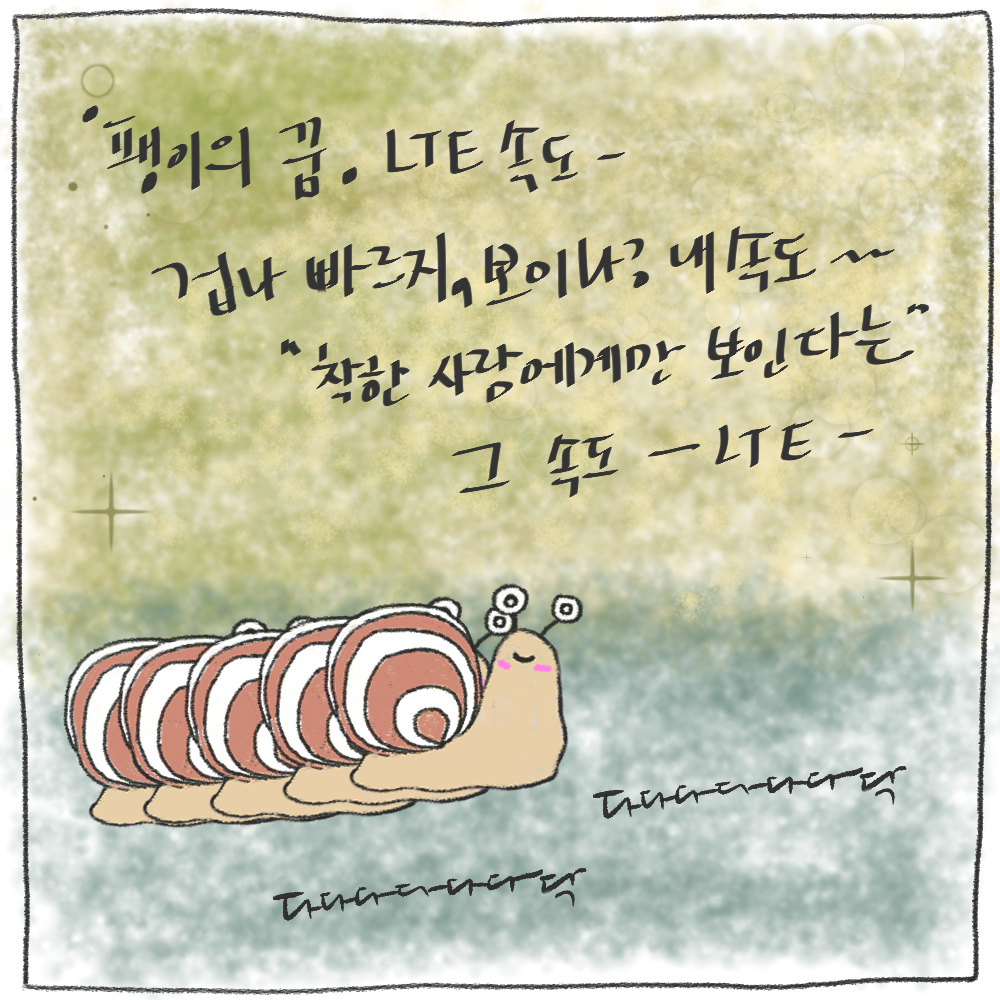 팽이의 꿈. LTE 속도-
겁나 빠르지, 보이나? 내 속도~
"착한 사람에게만 보인다는"
그 속도 - LTE -
다다다다다다닥
다다다다다다닥